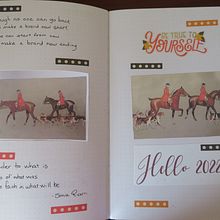 ough no one can go back
make a brand new start
start from now
make a brand new ending
der to what is
of what was
faith in what will be
BE TRUE TO
YOURSELF
Hello 2022